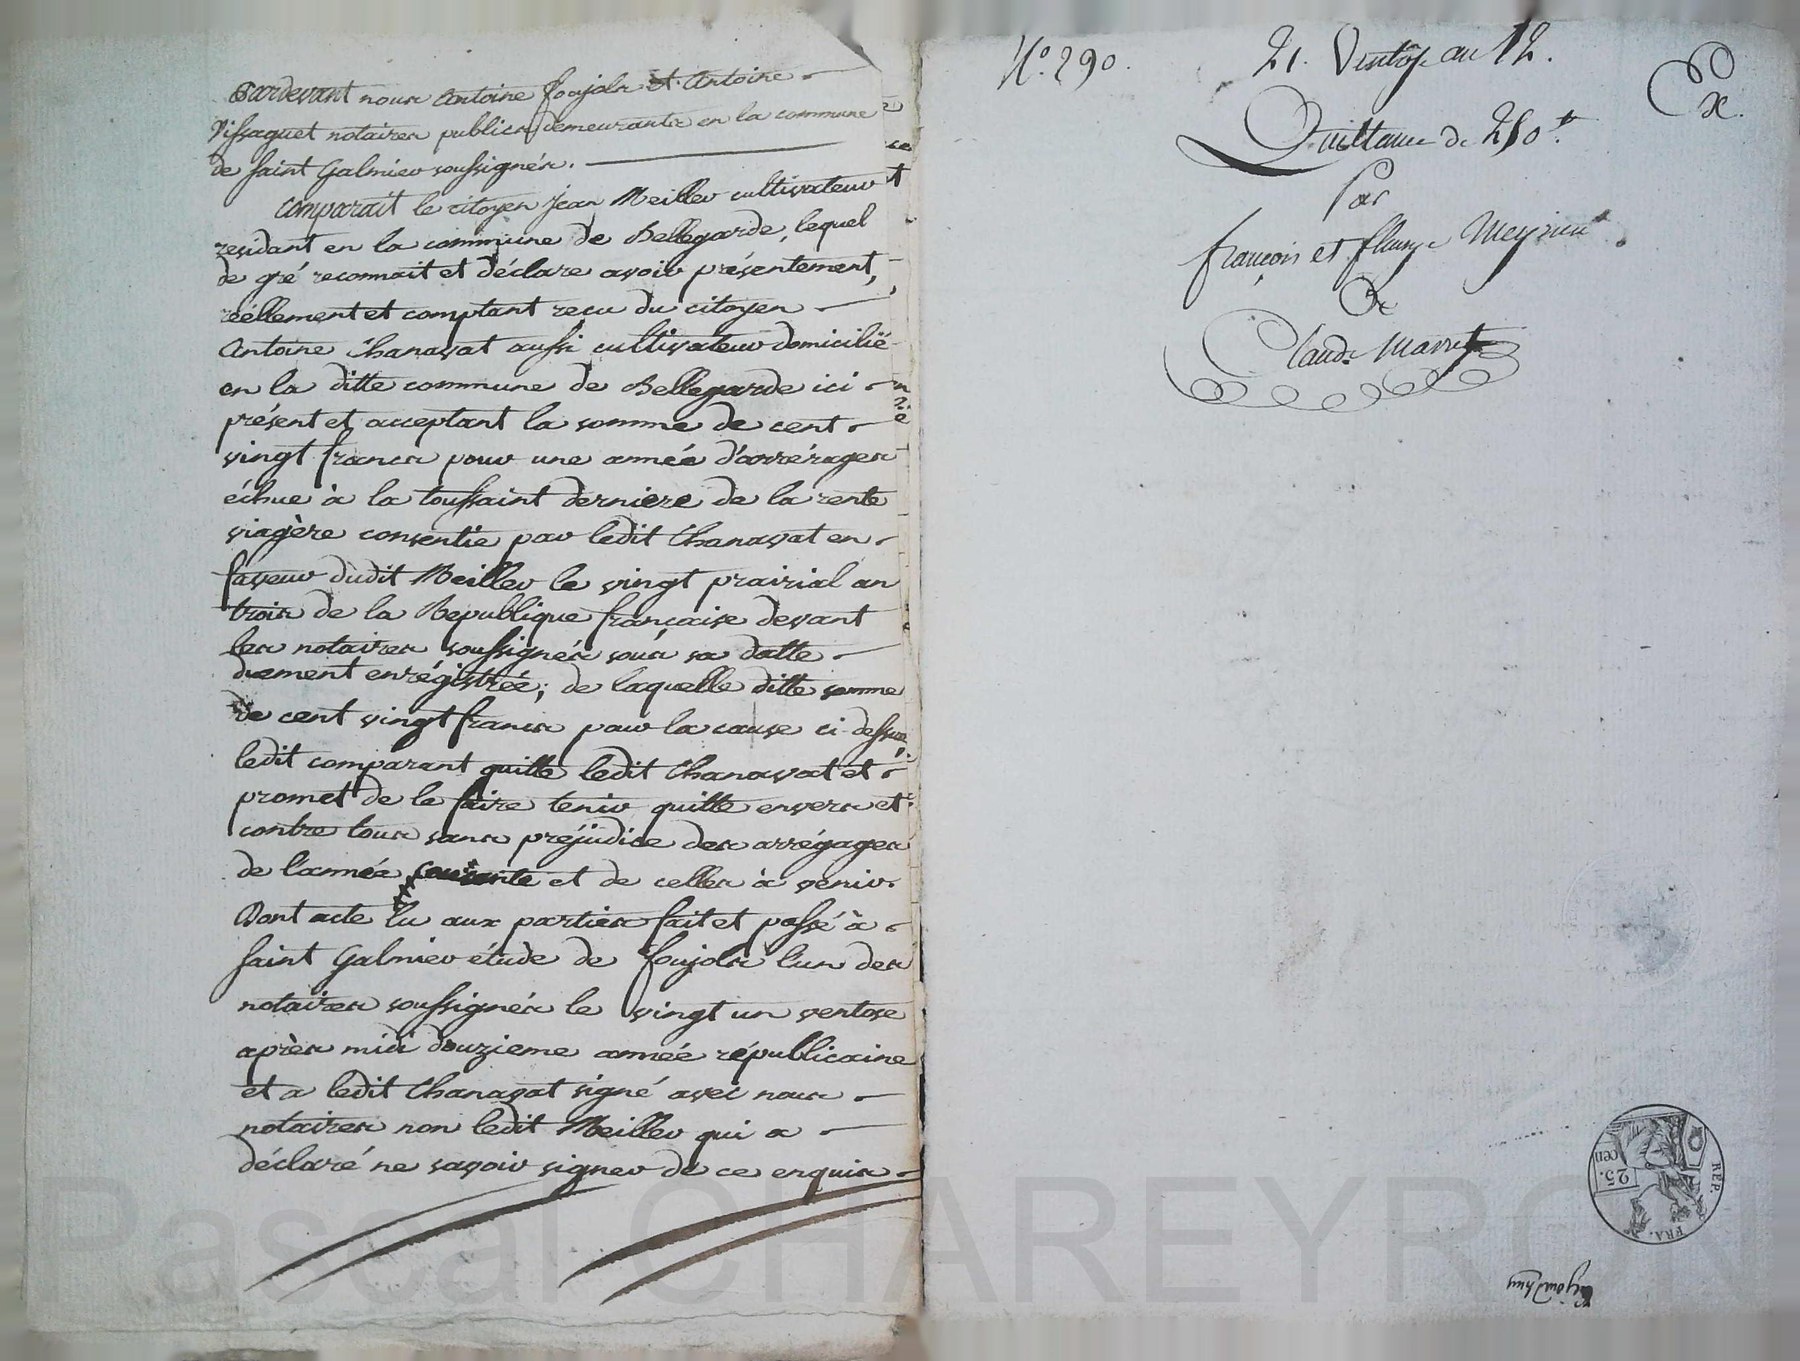 Pardevant nous Antoine Foujols et Antoine
Vissaguet notaires publics demeurants en la commune
de saint Galmier soussignés.
Comparait le citoyen jean Meiller cultivateur
residant en la commune de Bellegarde, lequel
de gré reconnait et déclare avoir présentement,
réellement et comptant reçu du citoyen
Antoine Chanavat aussi cultivateur domicilié
en la ditte commune de Bellegarde ici
présent et acceptant la somme de cent
vingt francs pour une année d'arrérages
échue à la toussaint derniere de la rente
viagère consentie par ledit Chanavat en
faveur dudit Meiller le vingt prairial an
trois de la République française devant
les notaires soussignés sous sa datte
duement enrégistrée; de laquelle ditte somme
de cent vingt francs pour la cause ci dessus,
ledit comparant quitte ledit Chanavat et
promet de le faire tenir quitte envers et
contre tous sans préjudice des arrégages
de l'année courante et de celles à venir.
Dont acte lu aux parties fait et passé à
saint Galmier étude de Foujols l'un des
notaires soussignés le vingt un ventose
après midi douzieme année républicaine
et a ledit Chanavat signé avec nous
notaires non ledit Meiller qui a
déclaré ne savoir signer de ce enquis
N.º 290.
21. Ventose an 12.
Ex.
Quittance de 250 ₶.
Par
françois et fleury Meyrieu
De
Claude Marret
25. cen
REP. FRA.
Pascal CHAREYRON